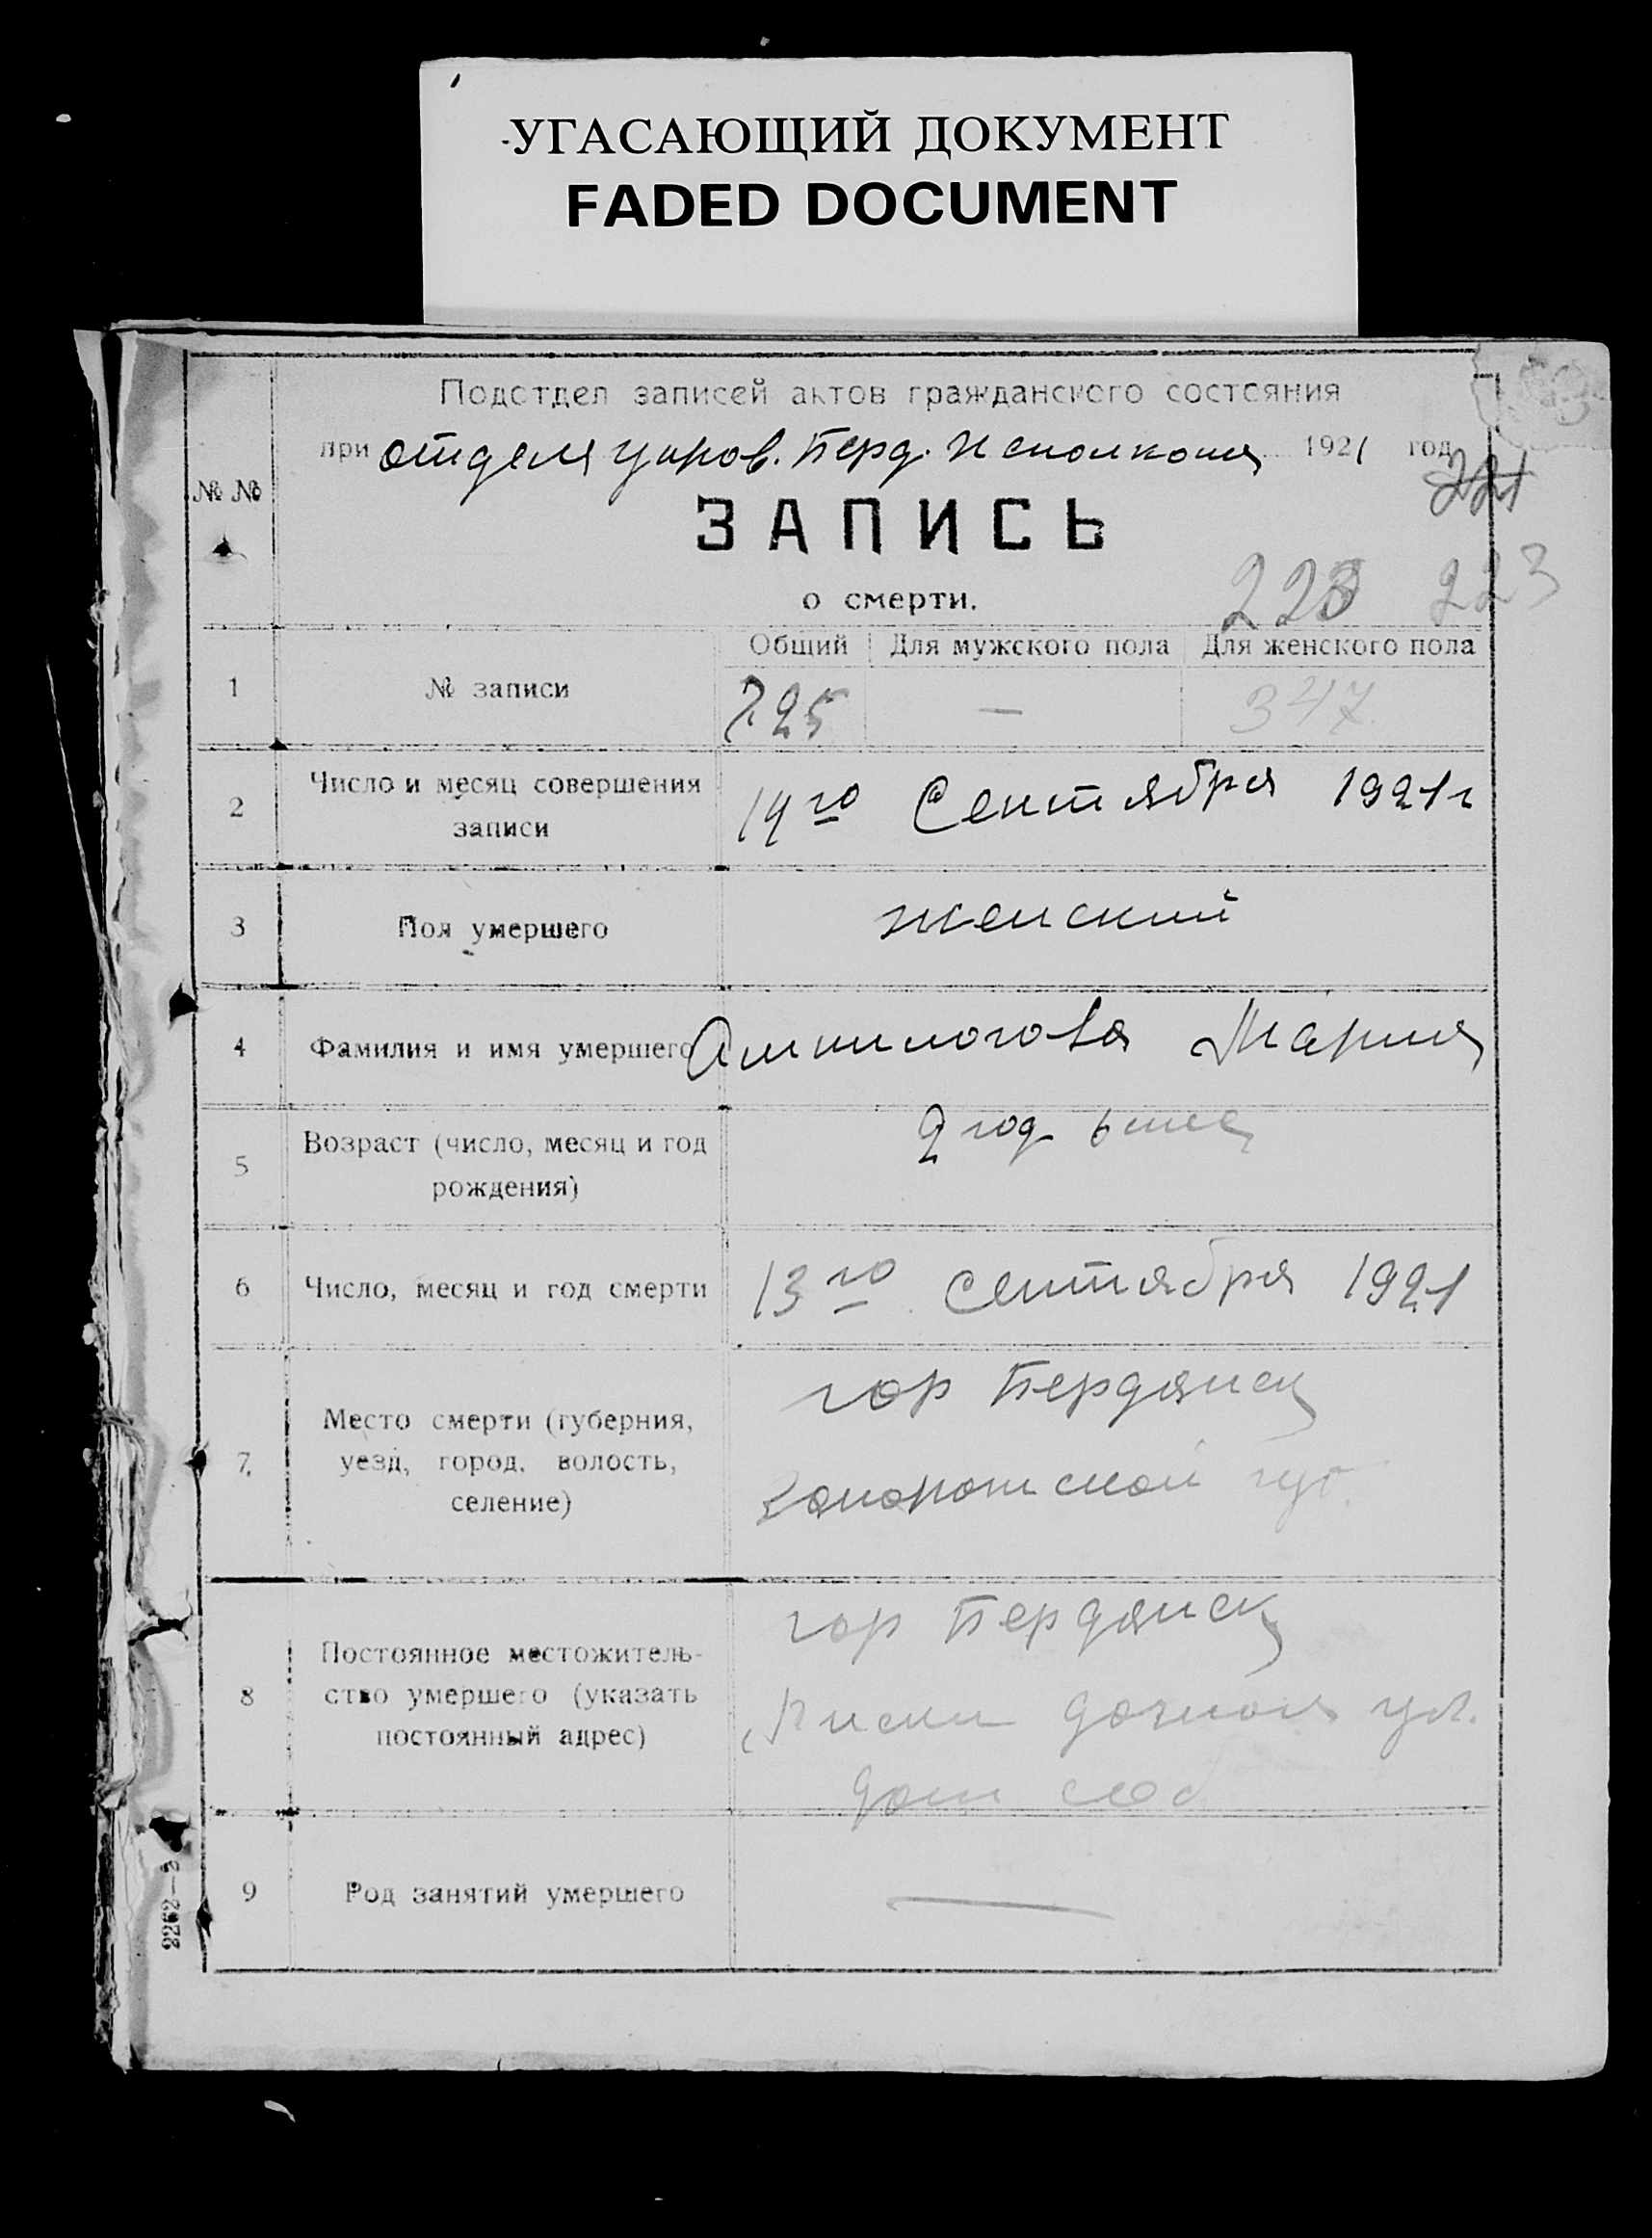 УГАСАЮЩИЙ ДОКУМЕНТ
FADED DOCUMENT
Подотдел записей актов гражданского состояния
при отделе управ. Берд. Исполкома 1921 год
№ №
221
ЗАПИСЬ
о смерти.
223 223
Общий Для мужского пола Для женского пола
1 № записи 725 — 347
2 Число и месяц совершения
записи
14го Сентября 1921 г
3 Пол умершего женский
4 Фамилия и имя умершего Мария
5 Возраст (число, месяц и год
рождения)
2 год 6 мес
6 Число, месяц и год смерти 13го сентября 1921
7 Место смерти (губерния,
уезд, город, волость,
селение)
гор Бердянск
Запорожской губ.
8 Постоянное местожитель-
ство умершего (указать
постоянный адрес)
гор Бердянск
ул.
дом
9 Род занятий умершего —
2262—3